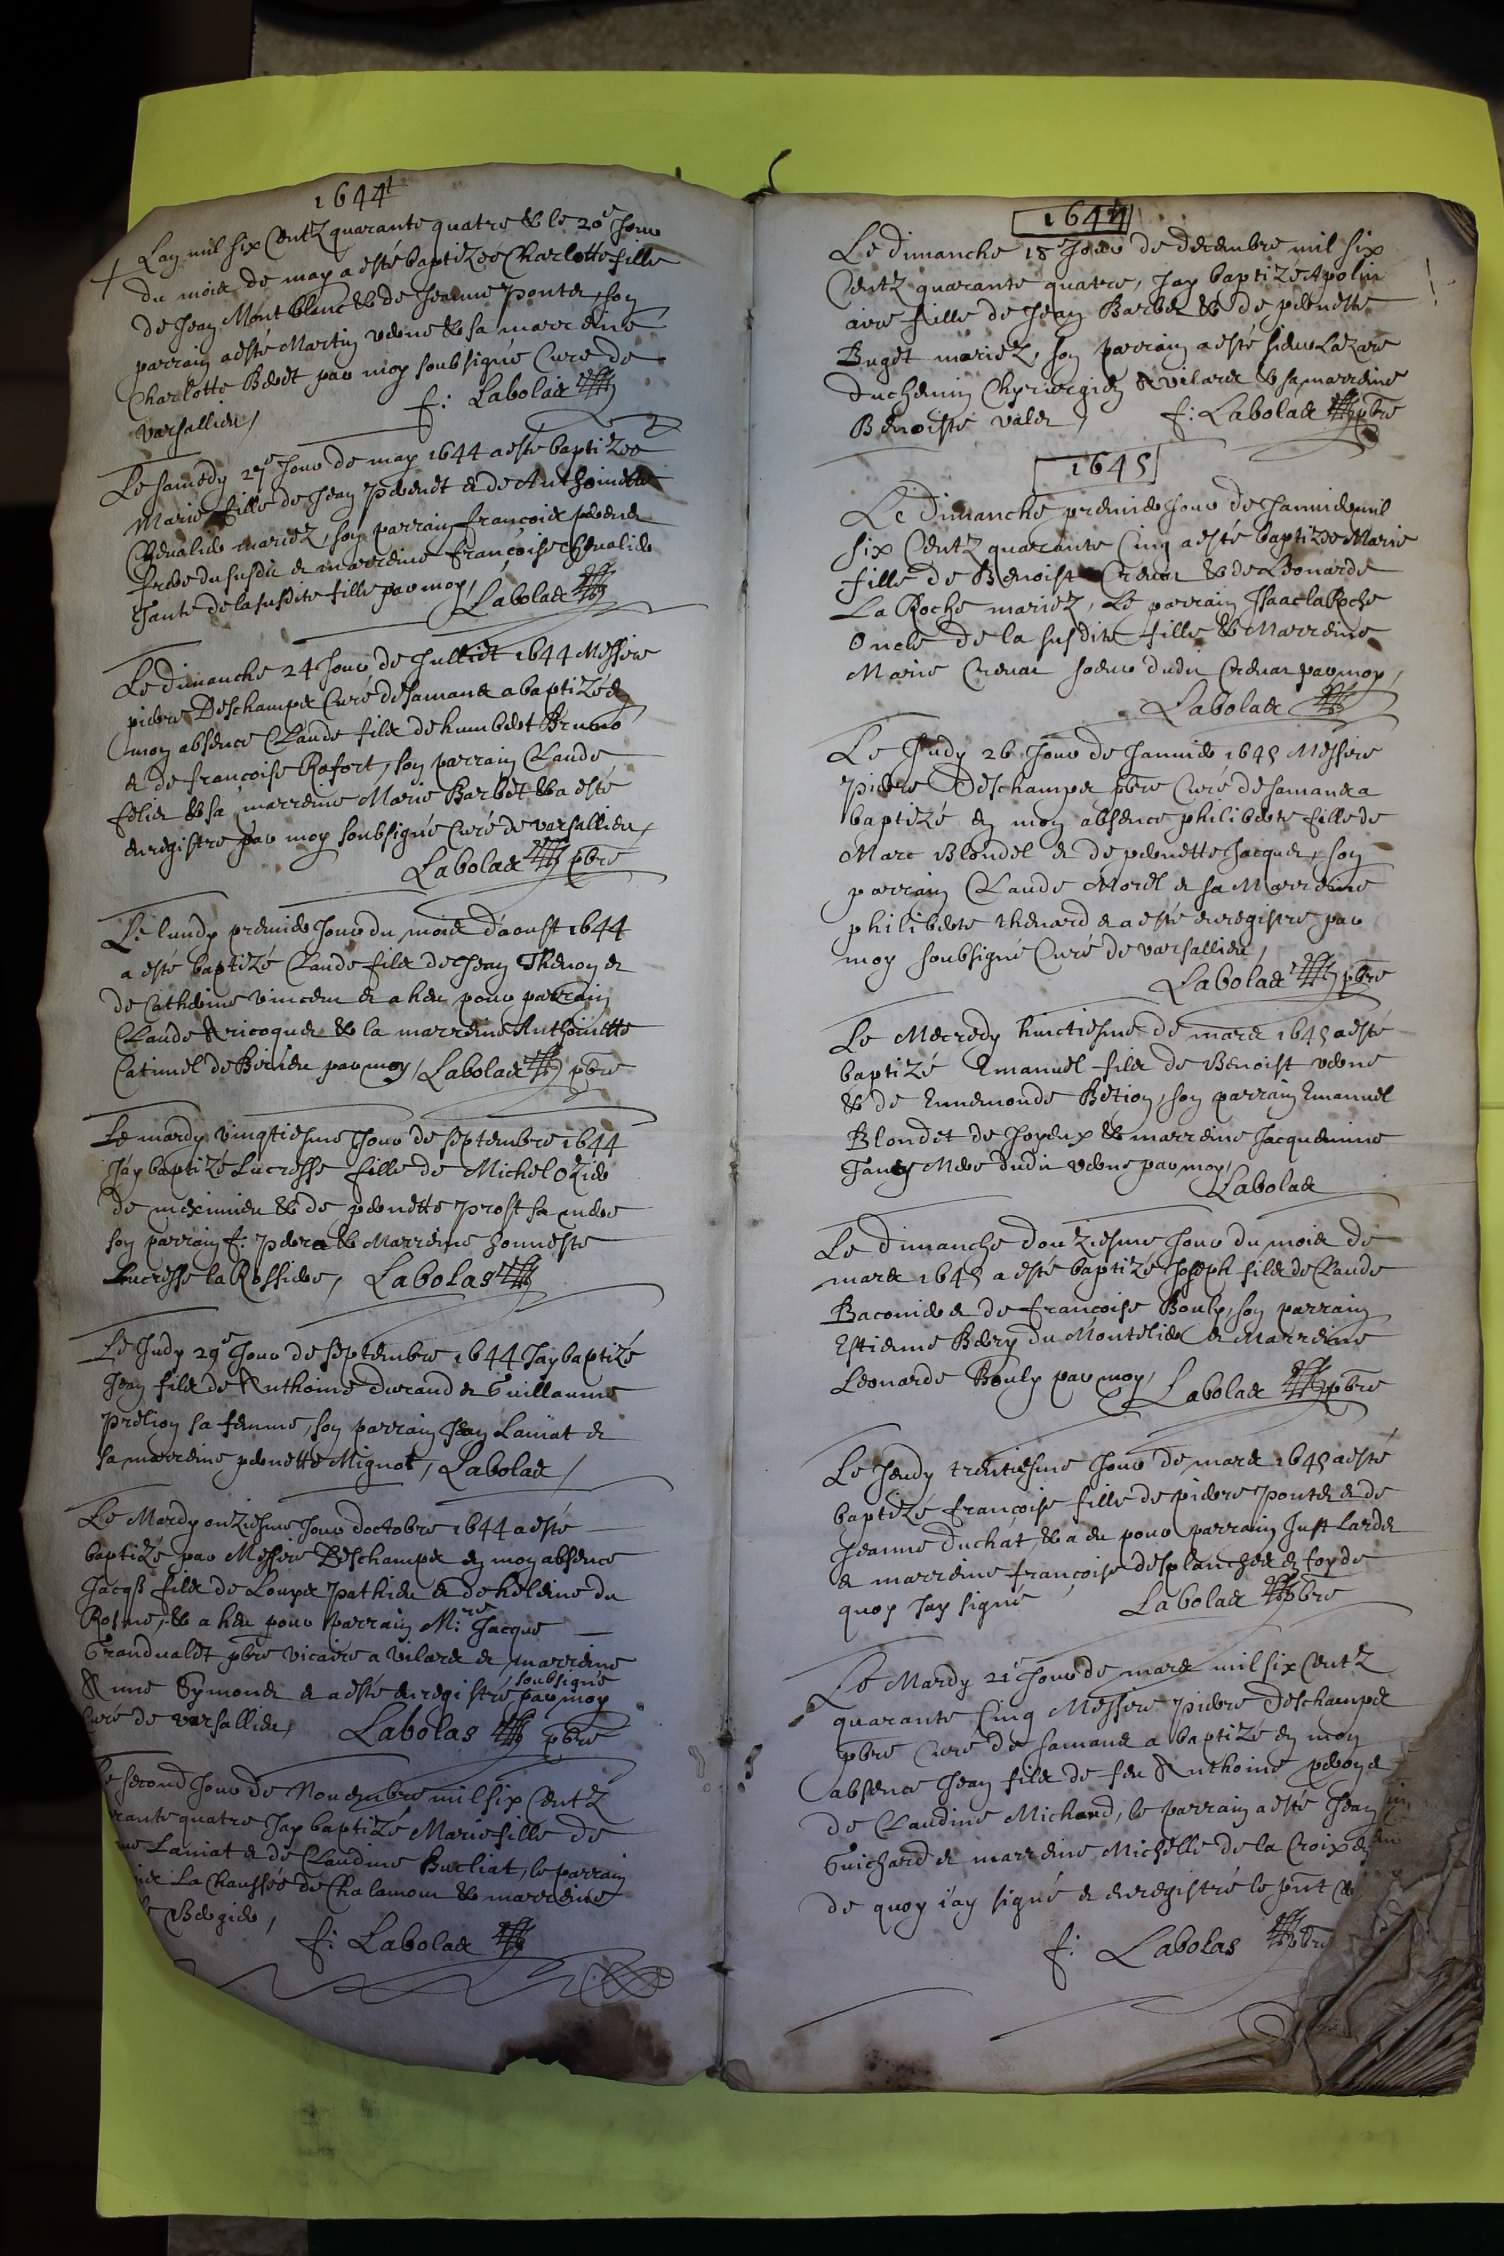 1644
Lan mil six Centz quarante quatre & le 20e Jour
du mois de may a esté baptizée Charlotte fille
de Jean Mont blanc & de Jeanne Ponta, son
parrain a esté Martin & sa marreine
Charlotte par moy soubsigné Curé de
Varsallieu / f: Labolas
Le samedy Jour de may 1644 a esté baptizée
Marie fille de Jean Pevenet & de Anthoinette
Chevalier mariez, son parrain françois
frere du susdit & marreine françoise Chevalier
Tante de la susdite fille par moy / Labolas
Le dimanche 24 Jour de Julliet 1644 Messire
pierre Deschamps Curé de Samans a baptizé en
mon absence Claude filz de humbert
& de françoise Rofort, son parrain Claude
felix & sa marreine Marie Barbet & a esté
enregistre par moy soubsigné Curé de varsallieu /
Labolas pbre
Le lundy premier Jour du mois d'aoust 1644
a esté baptizé Claude filz de Jean Thenon &
de Catherine vincent & a heu pour parrain
Claude & la marreine Anthoinette
Catinel de par moy / Labolas pbre
Le mardy vingtiesme Jour de septembre 1644
J'ay baptizé Lucresse fille de Michel Ozier
de meximieu & de pernette Prost sa mere
son parrain f. & Marreine honneste
Lucresse la Rossiere, Labolas
Le Judy 29e Jour de septembre 1644 J'ay baptizé
Jean filz de Anthoine durand & Guillaume
Prelion sa femme, son parrain Jean Laniat &
sa marreine pernette Mignot, Labolas /
Le Mardy onziesme Jour doctobre 1644 a esté
baptizé par Messire Deschamps en mon absence
Filz de Louys Pathieu & de heleine du
Rosne, & a heu pour parrain M:re Jacque
Granduallet pbre vicaire a vilars & marreine
Anne Symonet & a esté enregistré par moy soubsigné
Curé de varsallieu Labolas pbre
Le second Jour de Novembre mil six Centz
quatre Jay baptizé Marie fille de
Laniat & de Claudine Burliat, le parrain
La Chaussée de Chalamont & marreine
f: Labolas
1644
Le dimanche 18e Jour de decembre mil six
Centz quarante quatre, Jay baptizé Apolin
aire fille de Jean Barbet & de pernette
Buget mariez, son parrain a esté sieur Lazare
duchemin Chyrurgien A vilars & sa marreine
Benoiste valet / f: Labolas pbre
1645
Le Dimanche premier Jour de Janvier mil
six Centz quarante Cinq a esté baptizée Marie
fille de Benoist Crevat & de Leonarde
La Roche mariez, Le parrain Isaac la Roche
Oncle de la susdite fille & Marreine
Marie Crevat soeur dudit Crevat par moy /
Labolas
Le Judy 26 Jour de Janvier 1645 Messire
Pierre Deschamps pbre Curé de Samans a
baptizé en mon absence philiberte fille de
Marc Blondel & de pernette Jacquet, son
parrain Claude Morel & sa Marreine
philiberte thenard & a esté enregistré par
moy soubsigné Curé de varsallieu /
Labolas pbre
Le Mecredy huictiesme de mars 1645 a esté
baptizé Emanuel filz de Benoist
& de Ennemonde Betion, son parrain Emanuel
Blondet de Joyeux & marreine Jacquemine
par moy /
Labolas
Le dimanche douziesme Jour du mois de
mars 1645 a esté baptizé Joseph filz de Claude
Baconier & de françoise Bouly, son parrain
Estienne Bery du Montelier & Marreine
Leonarde Bouly par moy / Labolas pbre
Le Jeudy trentiesme Jour de mars 1645 a esté
baptizé françoise fille de pierre Ponta & de
Jeanne duchat, & a eu pour parrain Just Lardet
& marreine françoise desplanches en foy de
quoy Jay signé Labolas pbre
Le Mardy 21e Jour de mars mil six Centz
quarante Cinq Messire Pierre Deschamps
pbre Curé de Samans a baptizé en mon
absence Jean filz de feu Anthoine &
de Claudine Michaud, le parrain a esté Jean
Guichard & marreine Michelle de la Croix en
de quoy i'ay signé & enregistré le pnt
f: Labolas pbre